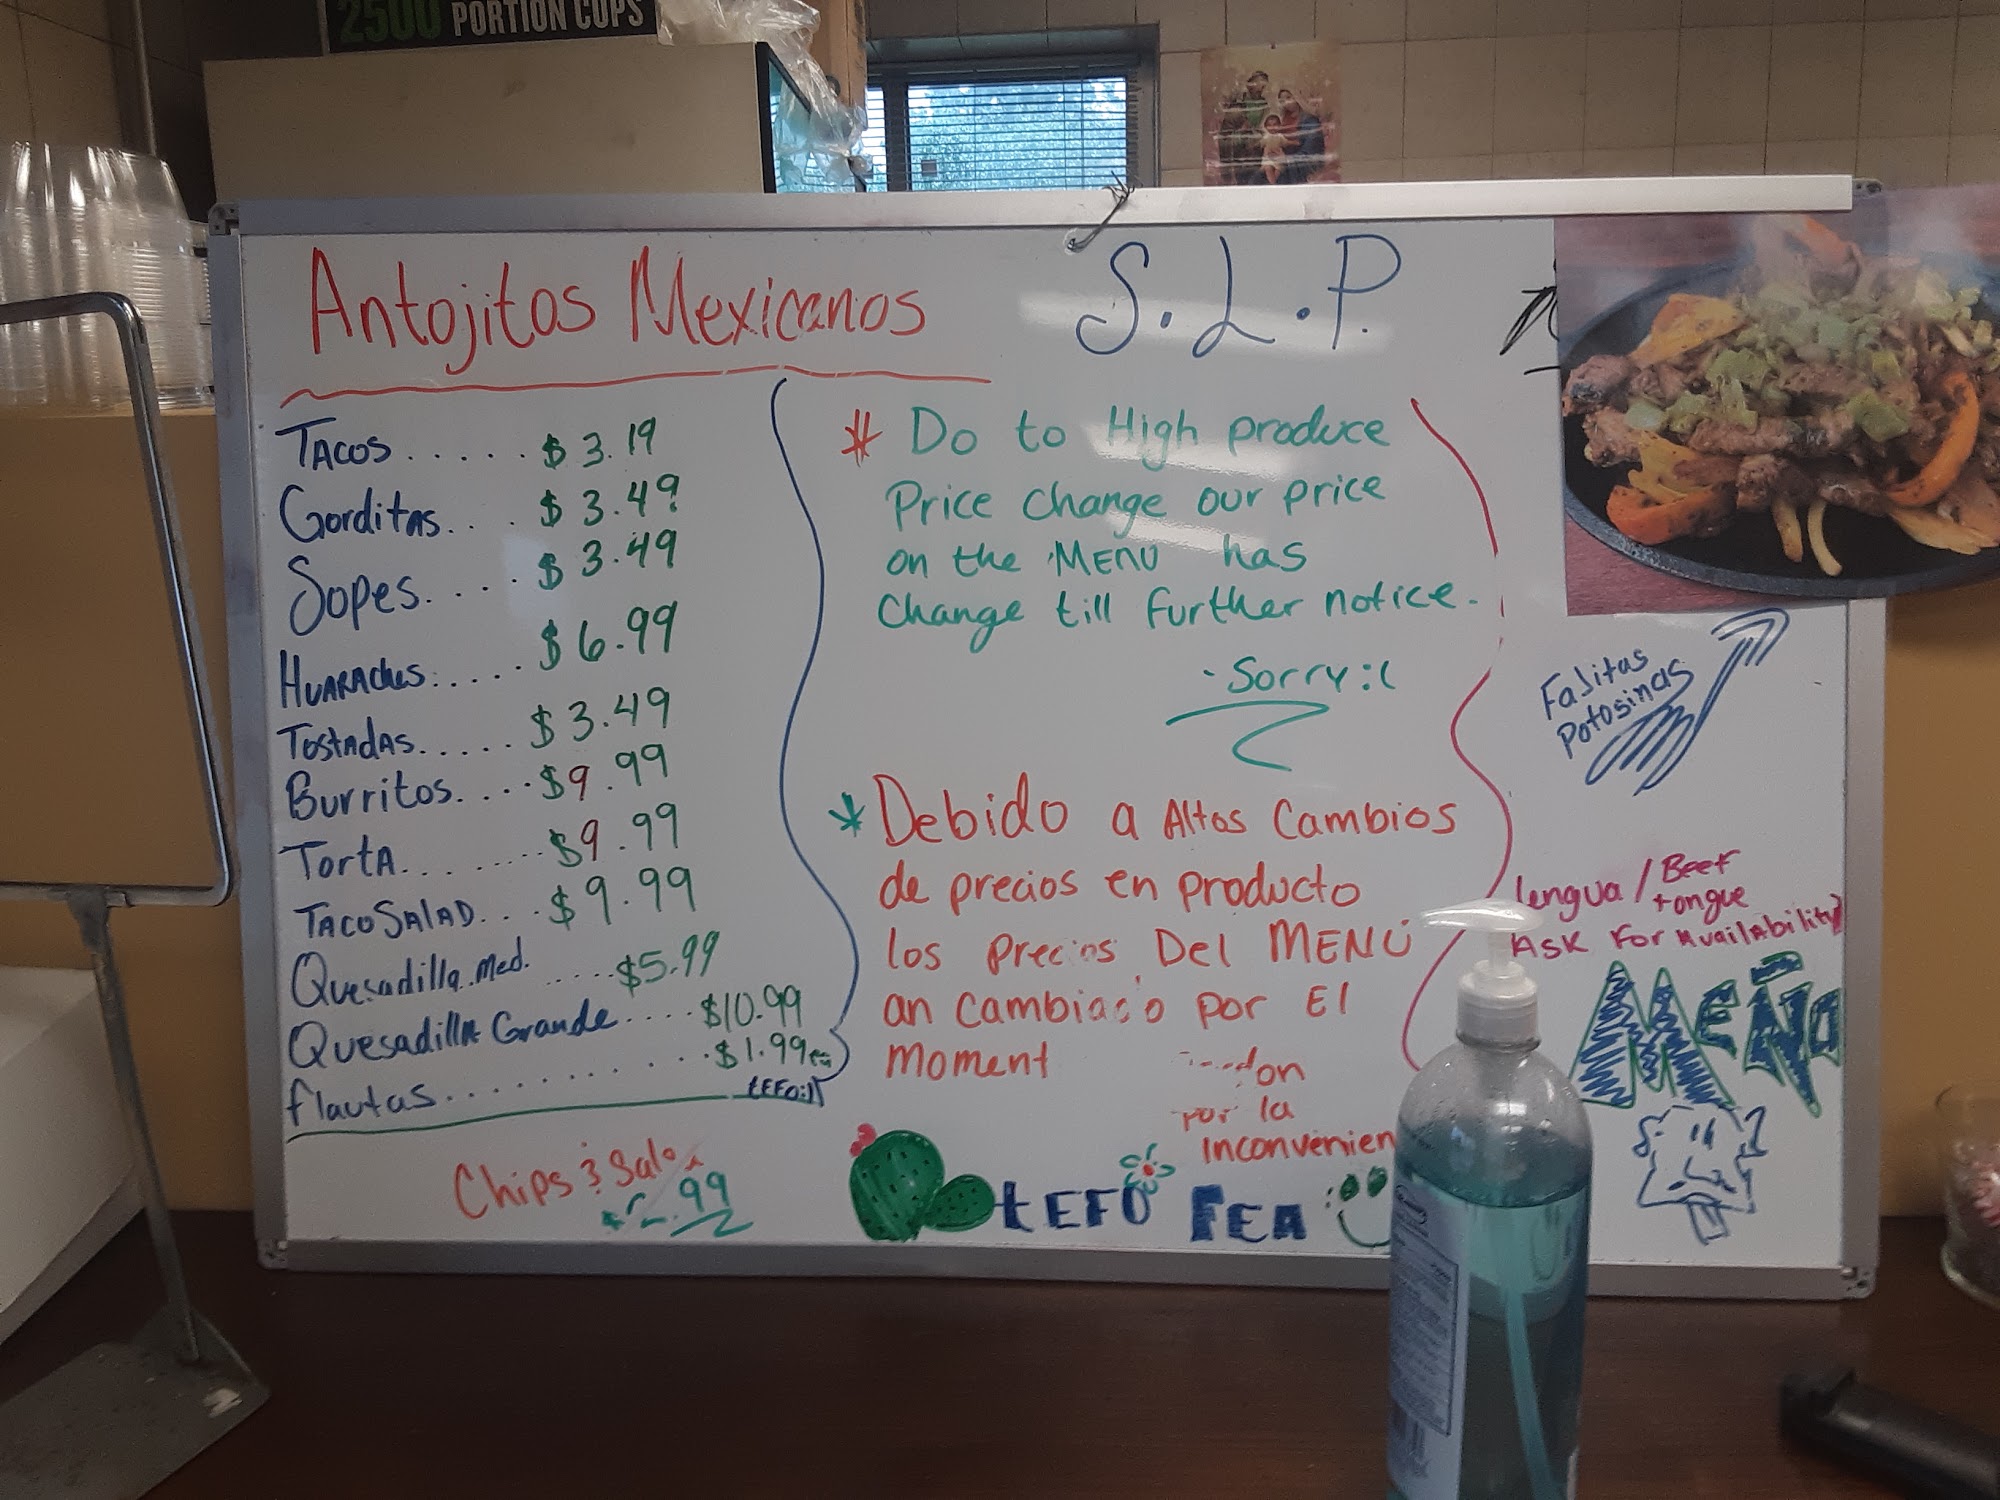 2500 PORTION CUPS
Antojitos Mexicanos
S.L.P.
Tacos ..... $3.19
Gorditas .. . $3.49
Sopes. .. . $3.49
Huaraches: .... $6.99
Tostadas ..... $3.49
Burritos. .... $9.99
Torta ........ $9.99
Taco Salad .. . $9.99
Quesadilla Med. .... $5.99
Quesadilla Grande .... $10.99
flautas .......... $1.99ea
tEFO:)
Chips & Salsa
.99
* Do to High produce
Price change our price
on the MENU has
Change till further notice.
-Sorry :(
* Debido a Altos Cambios
de precios en producto
los Precios Del MENÚ
an cambiado por El
moment
por la
inconvenien
tEFO FEA
Fajitas
Potosinas
lengua / Beef
tongue
Ask For Availability
MEÑO